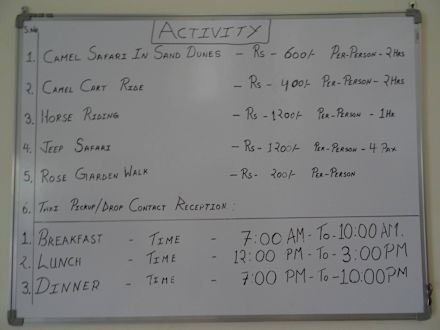 S.No ACTIVITY
1. CAMEL SAFARI IN SAND DUNES - RS - 600/- PER-PERSON - 2HRS
2. CAMEL CART RIDE - RS - 400/- PER-PERSON - 2HRS
3. HORSE RIDING - RS - 1200/- PER-PERSON - 1HR
4. JEEP SAFARI - RS - 1200/- PER-PERSON - 4 PAX
5. ROSE GARDEN WALK - RS - 200/- PER-PERSON
6. TAXI PICKUP/DROP CONTACT RECEPTION :
1. BREAKFAST - TIME - 7:00 AM - TO - 10:00 AM.
2. LUNCH - TIME - 12:00 PM - TO - 3:00 PM
3. DINNER - TIME - 7:00 PM - TO - 10:00 PM